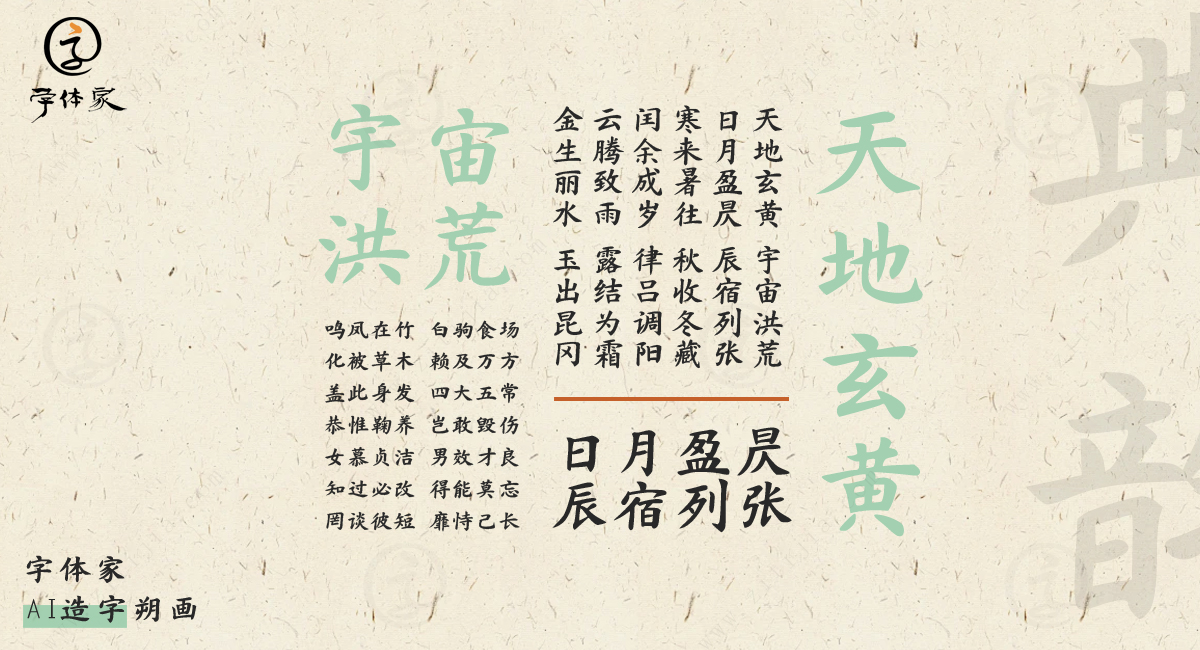 字体家
天地玄黄
天地玄黄 宇宙洪荒
日月盈昃 辰宿列张
寒来暑往 秋收冬藏
闰余成岁 律吕调阳
云腾致雨 露结为霜
金生丽水 玉出昆冈
日月盈昃
辰宿列张
宇宙
洪荒
鸣凤在竹 白驹食场
化被草木 赖及万方
盖此身发 四大五常
恭惟鞠养 岂敢毁伤
女慕贞洁 男效才良
知过必改 得能莫忘
罔谈彼短 靡恃己长
字体家
AI造字朔画